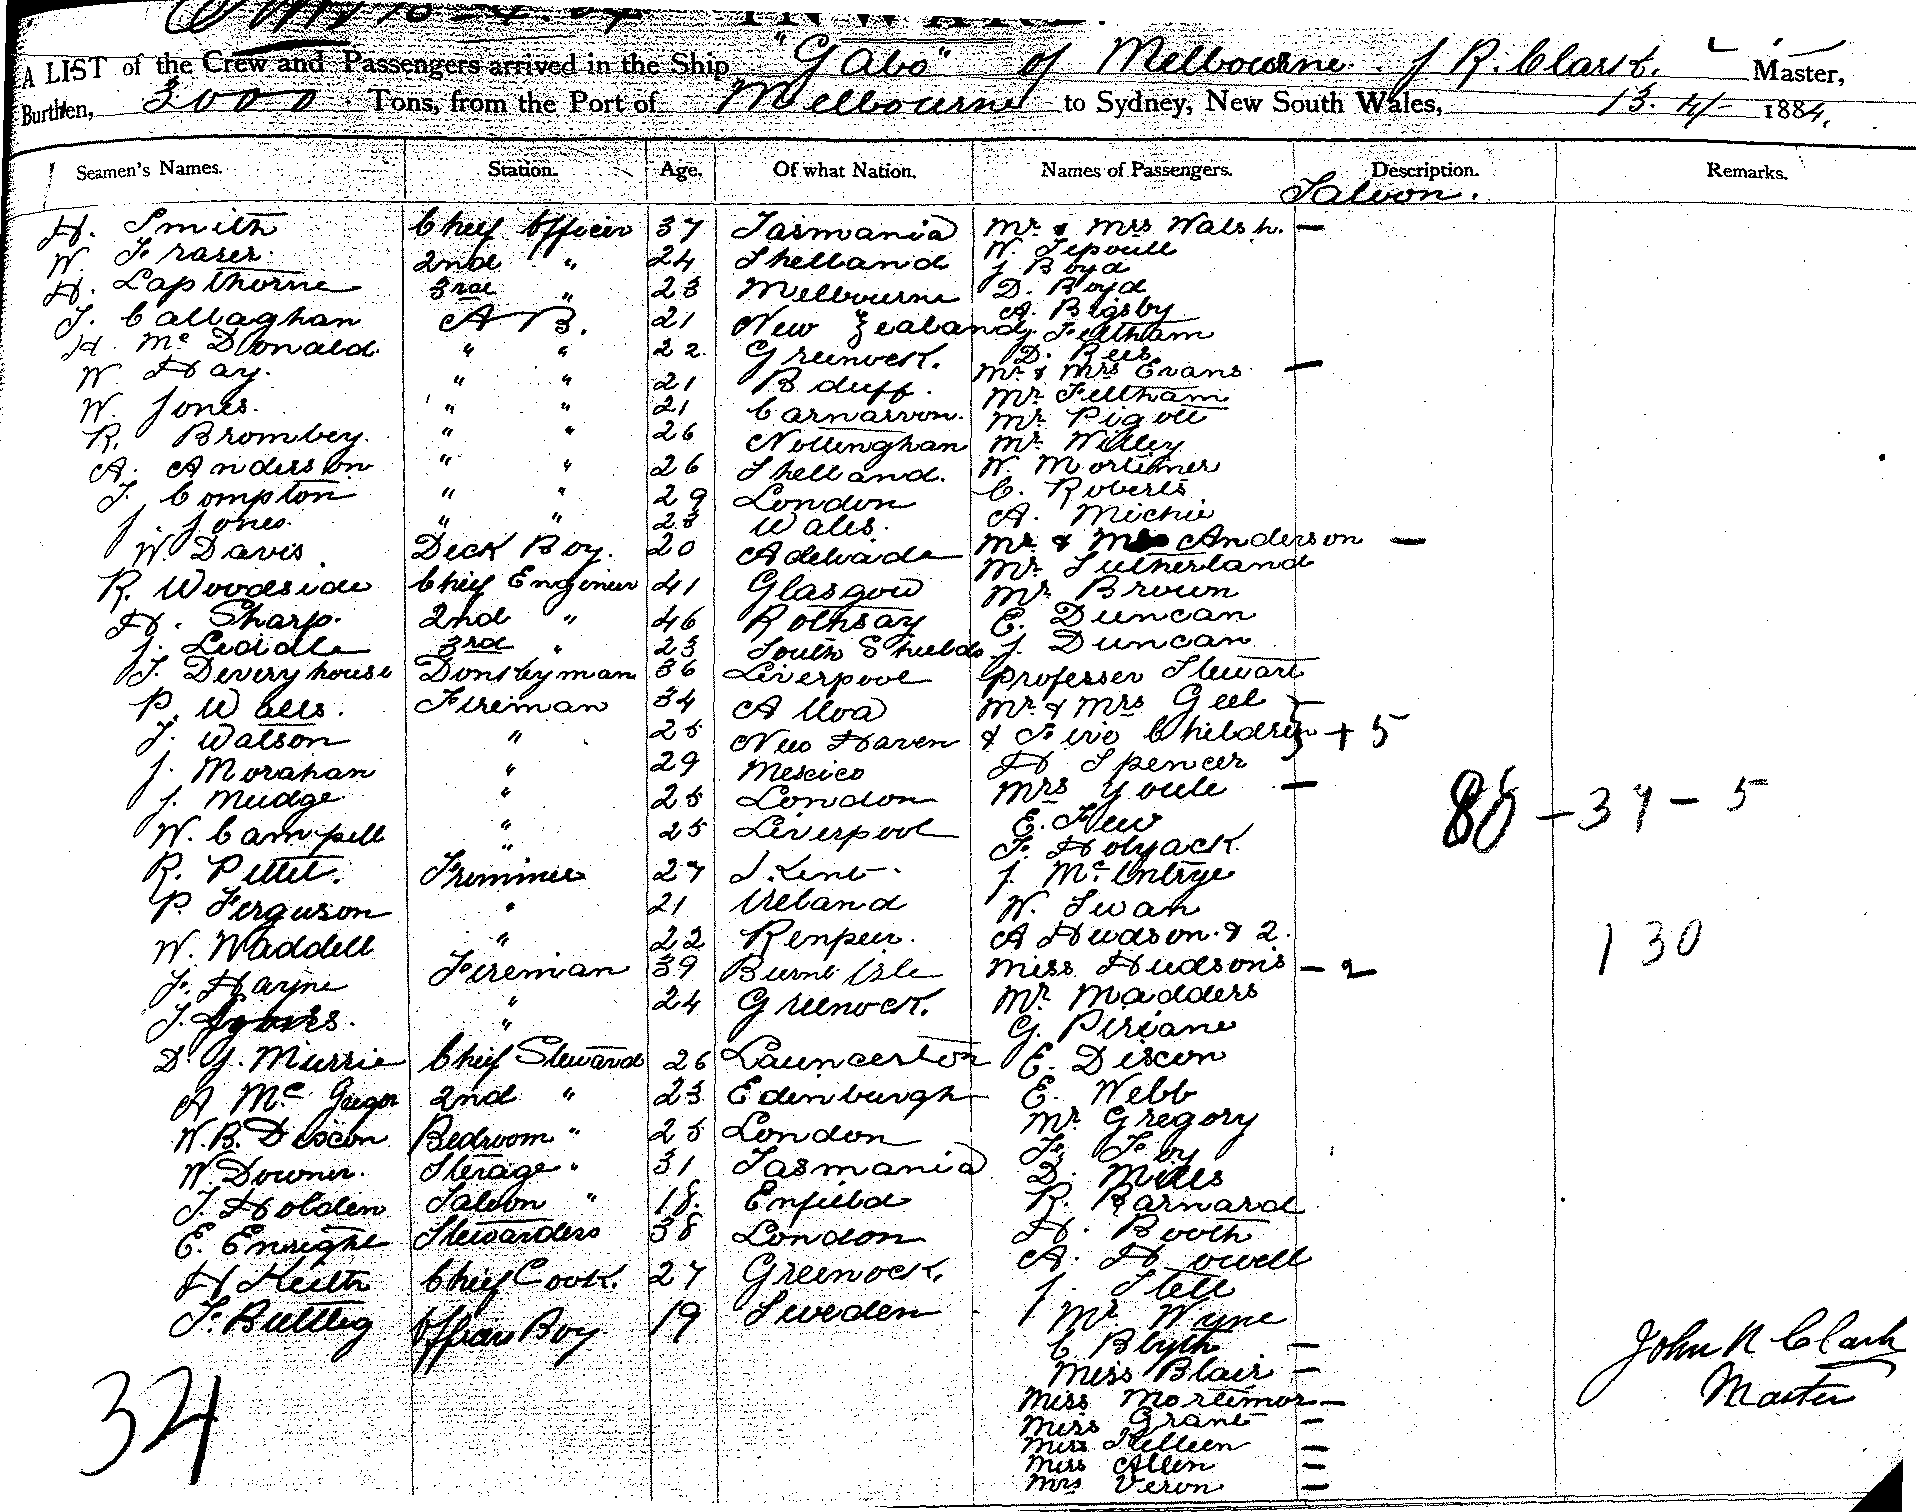 INWARD.
A LIST of the Crew and Passengers arrived in the Ship "Gabo" of Melbourne. J R. Clark. Master,
Burthen, 3000 Tons, from the Port of Melbourne to Sydney, New South Wales, 13. 4 1884.
Seamen's Names. Station. Age. Of what Nation. Names of Passengers. Description. Remarks.
Saloon.
H. Smith Chief Officer 37 Tasmania Mr & Mrs Walsh. —
W. Fraser. 2nd " 24 Shetland W.
J Boyd
H. Lapthorne 3rd " 23 Melbourne D. Boyd
T. Callaghan A B. 21 New Zealand A. Bigsby
J. Feltham
H. McDonald " " 22. Greenock. D. Rees
W Hay. " " 21 Banff. Mr & Mrs Evans —
Mr Feltham
W. Jones. " " 21 Carnarvon. Mr Pigott
R. Brombey. " " 26 Nottinghan Mr Willey
A. Anderson " " 26 Shetland. W. Mortimer
T. Compton " " 29 London C. Roberts
J. Jones. " " 23 Wales. A. Michie
W. Davis Deck Boy. 20 Adelaide Mr & Mrs Anderson —
Mr. Sutherland
R. Woodside Chief Engineer 41 Glasgow Mr Brown
H. Sharp. 2nd " 46 Rothsay E. Duncan
J. Liddle 3rd " 23 South Shields J. Duncan
T. Deveryhouse Donkeyman 36 Liverpool Professer Stewart
P. Walls. Fireman 34 Alloa Mr & Mrs Geel —
T. Watson " 25 New Haven & Five Children + 5
J. Morahan " 29 Mexico H Spencer
J. Mudge " 25 London Mrs Youle —
W. Campell " 25 Liverpool E. Few
88 - 37 - 5
F. Holyack
R. Pettet. Trimmer 27 Kent. J. McIntrye
P. Ferguson " 21 Ireland W. Swan
W. Waddell " 22 A Hudson. & 2.
130
F. Harpe Fireman 39 Burnt Isle Miss Hudsons — 2
T. " 24 Greenock. Mr Madders
" G. Piriane
D. Y. Murrie Chief Steward 26 Launceston E. Dixon
A McGregor 2nd " 23 Edinburgh E. Webb
W. B. Dixon Bedroom " 25 London Mr Gregory
F. Foy
W. Downer. Sterage " 31 Tasmania D. Mills
T. Holden Saloon " 18. Enfield R. Barnard
E. Enright Stewardess 38 London H. Booth
A. Howell
H Keith Chief Cook. 27 Greenock. J. Stell
F. Buttlig Officers Boy 19 Sweden Mr Wyne
C Blyth —
Miss Blair —
Miss Mortimor —
Miss Grant —
Miss Kelleen —
Miss Allen —
Mrs Veron —
John R Clark
Master
34